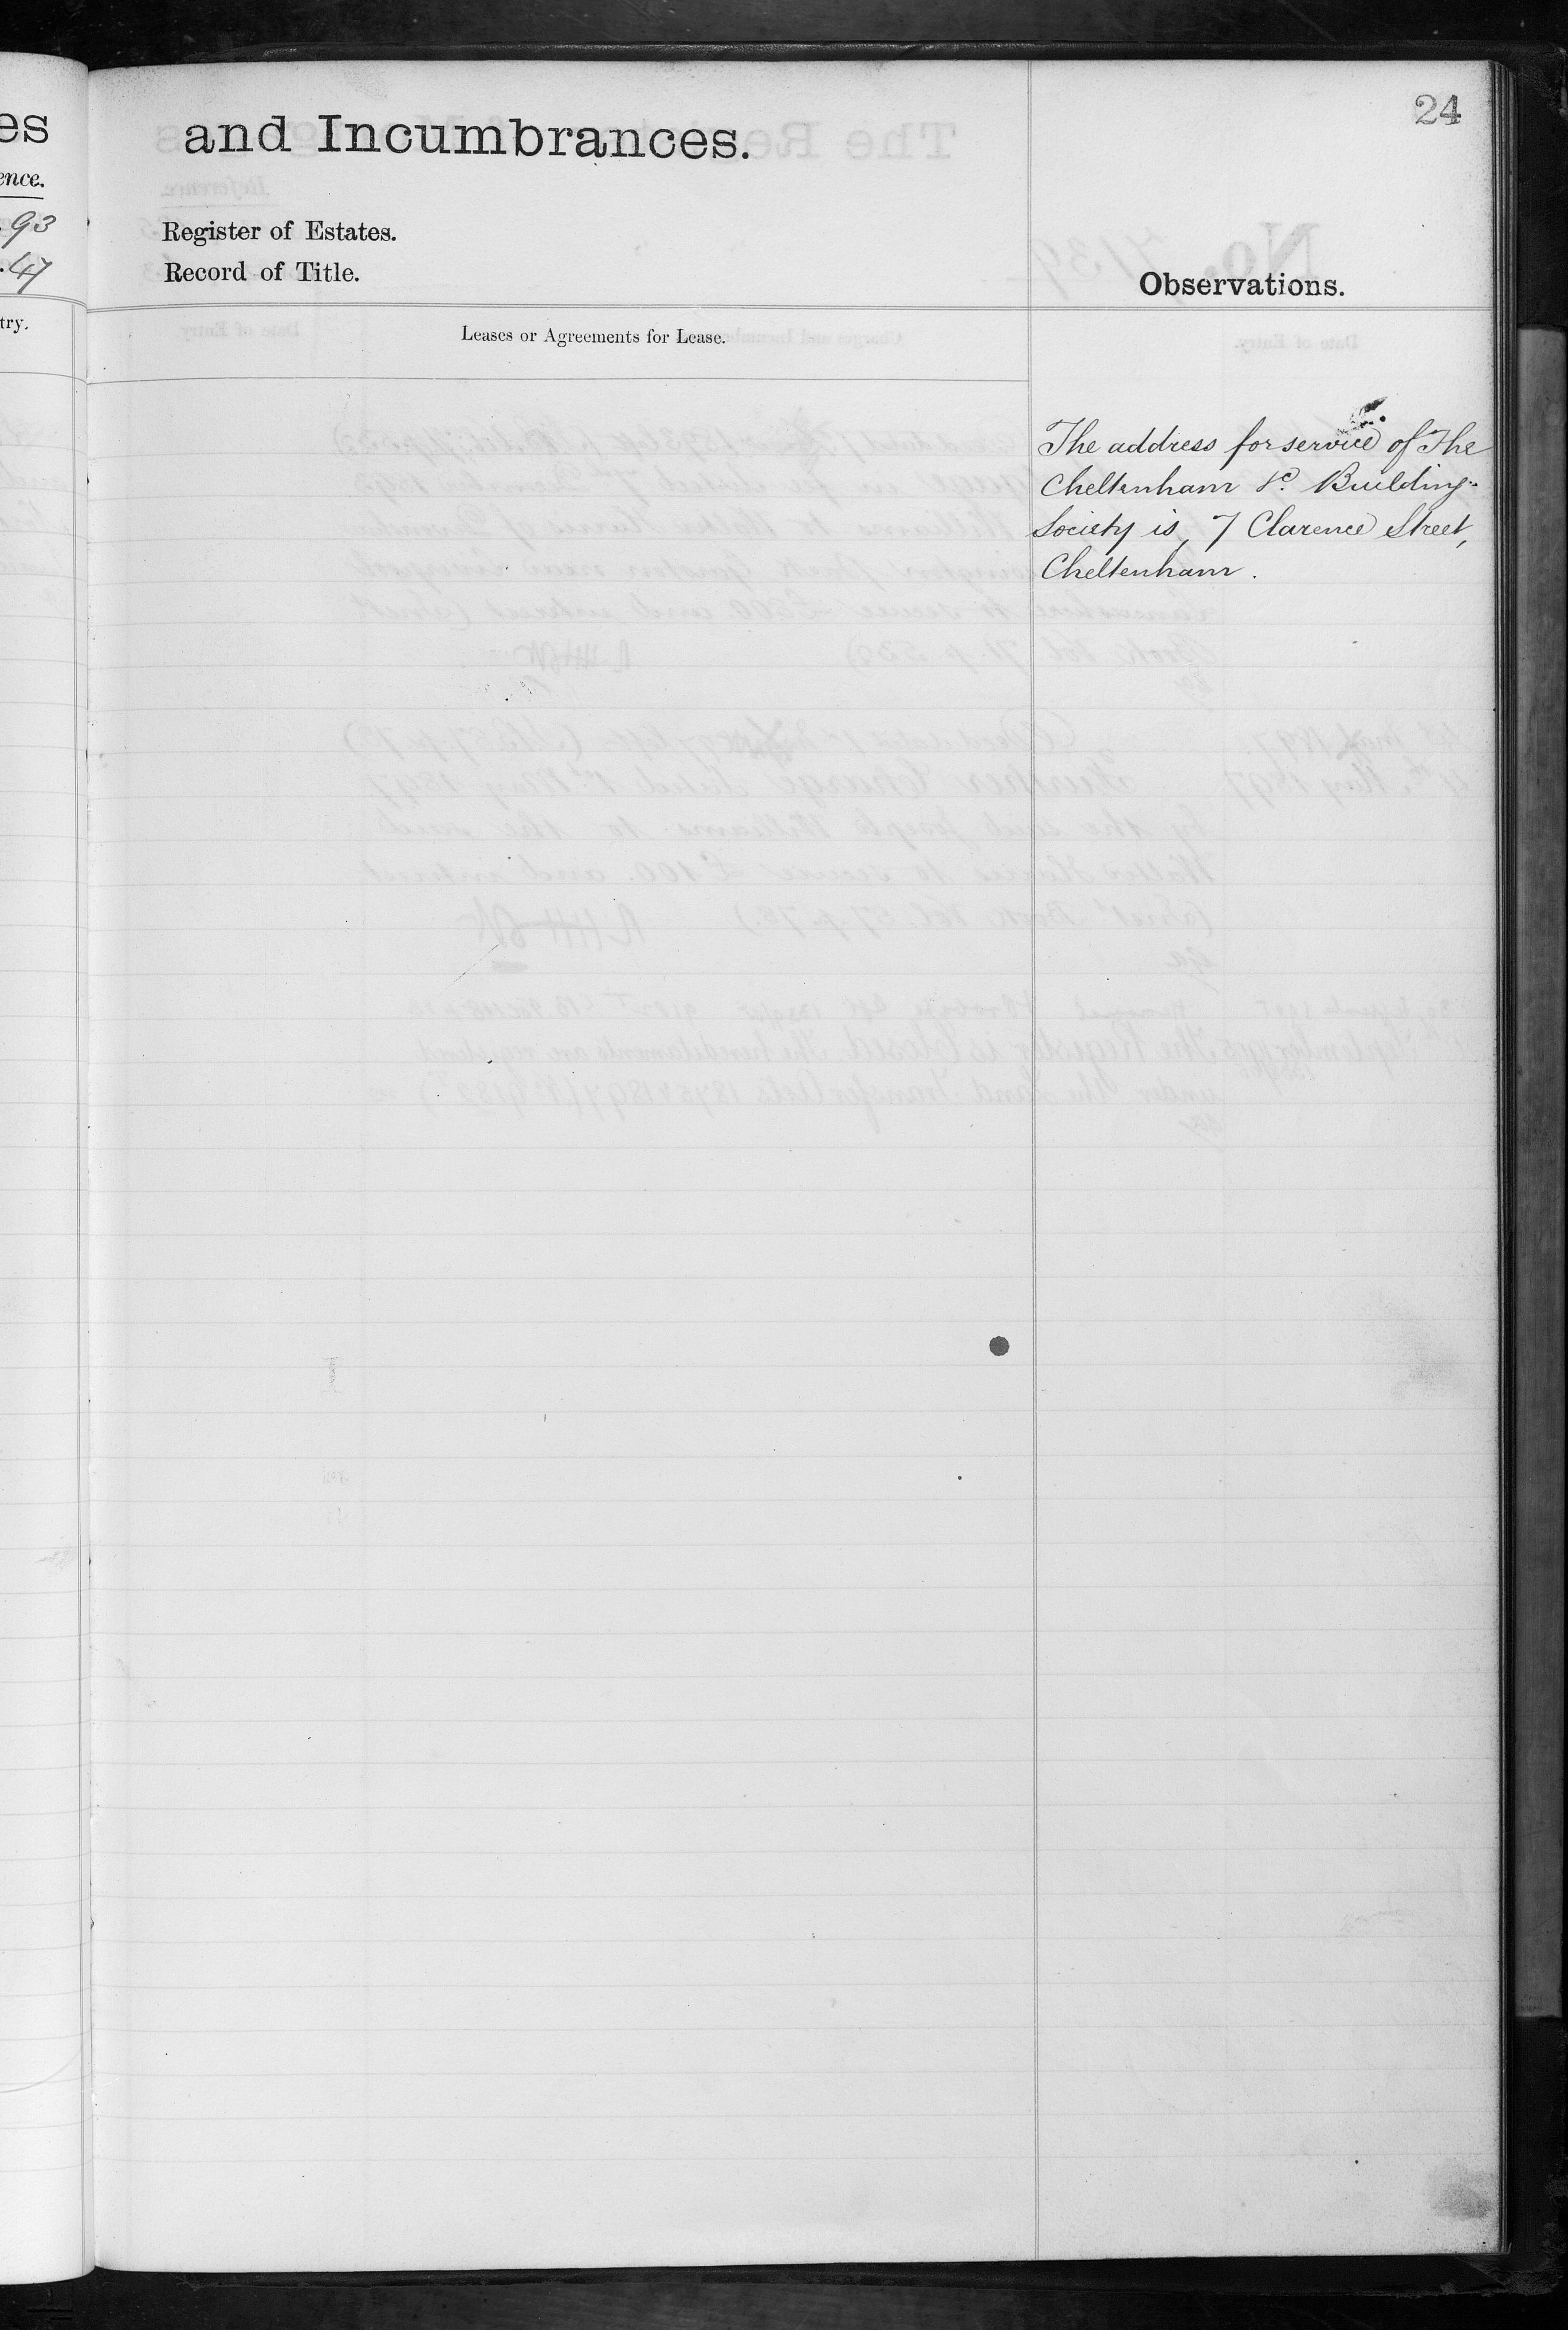 24
es
and Incumbrances.
ence.
93
Register of Estates.
47
Record of Title.
Observations.
try.
Leases or Agreements for Lease.
The address for service of The
Cheltenham &c. Building
Society is, 7 Clarence Street,
Cheltenham.